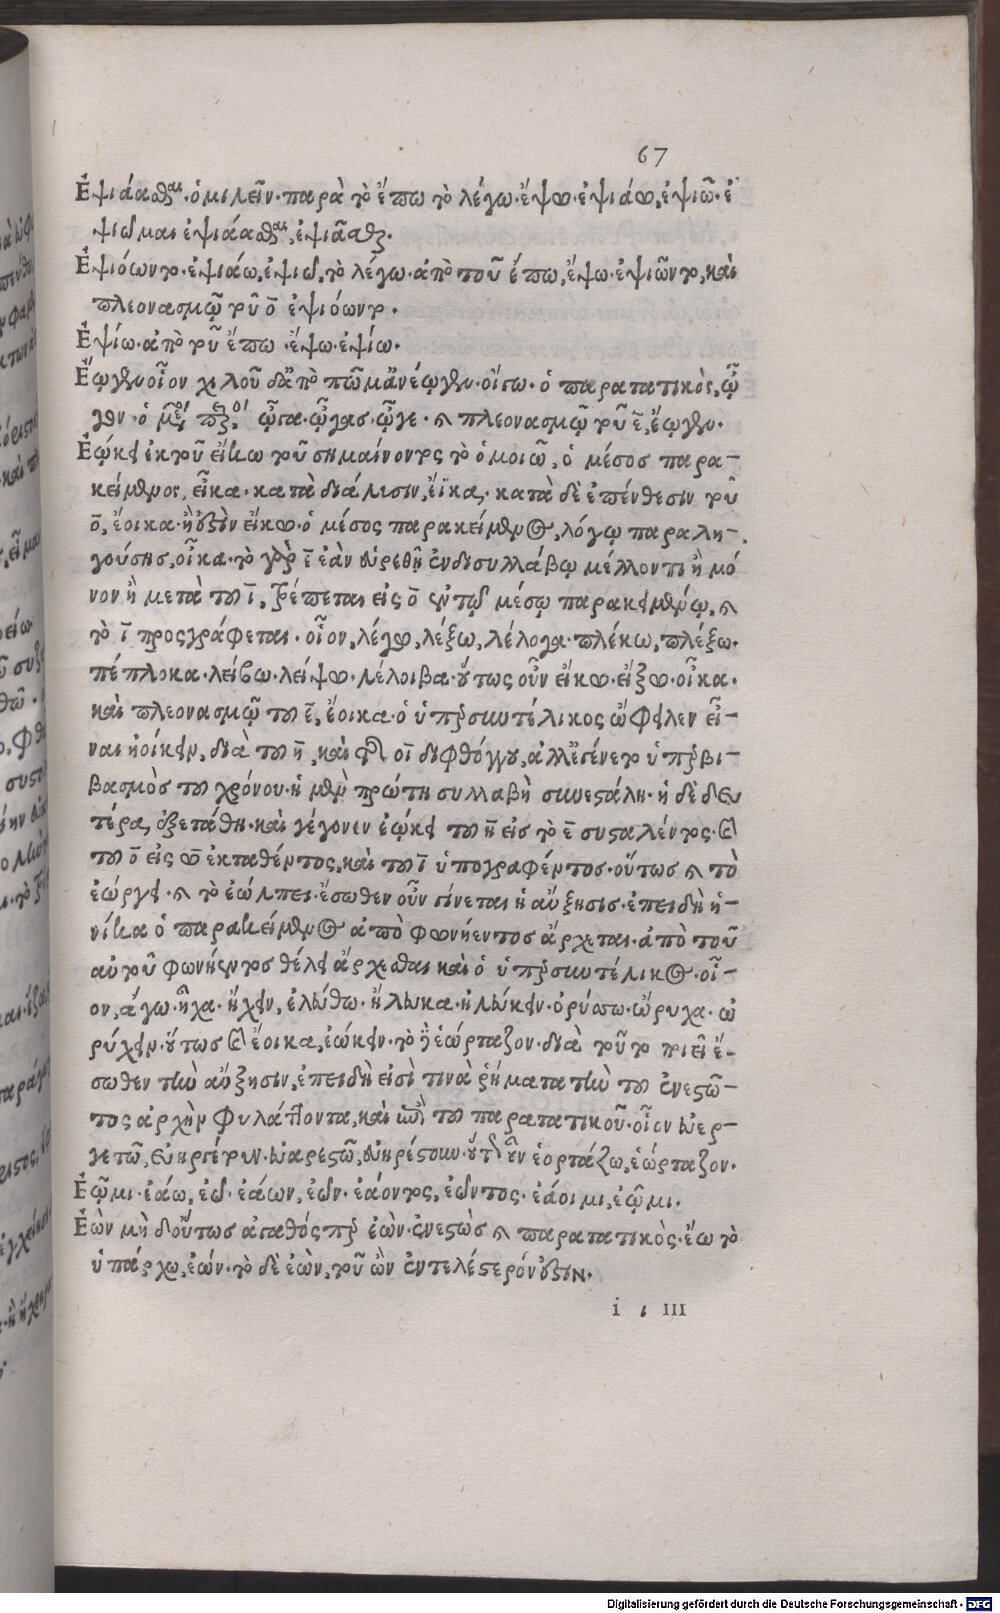 67
Ἐψιάασθαι· ὁμιλεῖν· παρὰ τὸ ἔπω τὸ λέγω· ἔψω· ἐψιάω, ἐψιῶ· ἐ
ψιῶμαι ἐψιάασθαι, ἐψιᾶσθαι.
Ἐψιόωντο· ἐψιάω, ἐψιῶ, τὸ λέγω· ἀπὸ τοῦ ἔπω, ἔψω· ἐψιῶντο, καὶ
πλεονασμῷ τοῦ ο̄ ἐψιόωντο.
Ἐψίω· ἀπὸ τοῦ ἔπω· ἔψω· ἐψίω.
Ἐῴγνυ οἷον χιλοῦ δ' ἄπο πῶμ' ἀνέῳγνυ· οἴγω· ὁ παρατατικὸς, ᾦ
γον· ὁ ᾦγα· ᾦγας· ᾦγε· καὶ πλεονασμῷ τοῦ ε̄, ἔῳγνυ.
Ἐῴκει ἐκ τοῦ εἴκω τοῦ σημαίνοντος τὸ ὁμοιῶ, ὁ μέσος παρα-
κείμενος, εἶκα· κατὰ διάλυσιν, ἔϊκα, κατὰ δὲ ἐπένθεσιν τοῦ
ο̄, ἔοικα· ἢ οὕτως εἴκω· ὁ μέσος παρακείμενος, λόγῳ παραλη-
γούσης, οἶκα· τὸ γὰρ ῑ ἐὰν εὑρεθῇ ἐν δισυλλάβῳ μέλλοντι ἢ μό
νον ἢ μετὰ τοῦ ῑ, τρέπεται εἰς ο̄ ἐν τῷ μέσῳ παρακειμένῳ, καὶ
τὸ ῑ προσγράφεται· οἷον, λέγω, λέξω, λέλογα· πλέκω, πλέξω·
πέπλοκα· λείβω· λείψω· λέλοιβα· οὕτως οὖν εἴκω· εἴξω· οἶκα·
καὶ πλεονασμῷ τοῦ ε̄, ἔοικα· ὁ ὑπερσυντέλικος ὤφειλεν εἶ-
ναι ἠοίκειν, διὰ τοῦ η̄, καὶ τῆς οῑ διφθόγγου, ἀλλ' ἐγένετο ὑπερβι-
βασμὸς τοῦ χρόνου· ἡ μὲν πρώτη συλλαβὴ συνεστάλη· ἡ δὲ δευ
τέρα, ἐξετάθη· καὶ γέγονεν ἐῴκει τοῦ η̄ εἰς τὸ ε̄ συσταλέντος· καὶ
τοῦ ο̄ εἰς ω̄ ἐκταθέντος, καὶ τοῦ ῑ ὑπογραφέντος· οὕτως καὶ τὸ
ἐώργει· καὶ τὸ ἐώλπει· ἔσωθεν οὖν γίνεται ἡ αὔξησις· ἐπειδὴ ἡ-
νίκα ὁ παρακείμενος ἀπὸ φωνήεντος ἄρχεται· ἀπὸ τοῦ
αὐτοῦ φωνήεντος θέλει ἄρχεσθαι καὶ ὁ ὑπερσυντέλικος· οἷ-
ον, ἄγω· ἦχα· ἤχειν, ἐλεύθω· ἤλευκα· ἠλεύκειν· ὀρύσσω· ὤρυχα· ὠ
ρύχειν· οὕτως καὶ ἔοικα, ἐῴκειν· τὸ δὲ ἑώρταζον· διὰ τοῦτο ποιεῖ ἔ-
σωθεν τὴν αὔξησιν, ἐπειδὴ εἰσὶ τινὰ ῥήματα τὴν τοῦ ἐνεστῶ-
τος ἀρχὴν φυλάττοντα, καὶ ἐπὶ τοῦ παρατατικοῦ· οἷον εὐερ-
γετῶ, εὐηργέτουν· εὐαρεστῶ, εὐηρέστουν· οὕτως οὖν ἑορτάζω, ἑώρταζον.
Ἐῷμι· ἐάω, ἐῶ· ἐάων, ἐῶν· ἐάοντος, ἐῶντος· ἐάοιμι, ἐῷμι.
Ἐὼν μὴ δ' οὕτως ἀγαθός περ ἐὼν· ἐνεστὼς καὶ παρατατικὸς· ἔω τὸ
ὑπάρχω, ἐών· τὸ δὲ ἐὼν, τοῦ ὢν ἐντελέστερόν ἐστιν.
i . III
Digitalisierung gefördert durch die Deutsche Forschungsgemeinschaft - DFG